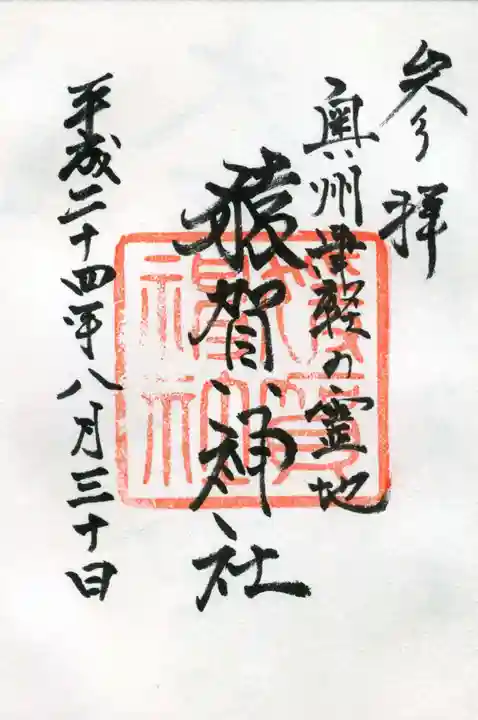 参拝
奥州津軽の霊地
猿賀神社
平成二十四年八月三十日
猿賀
神社